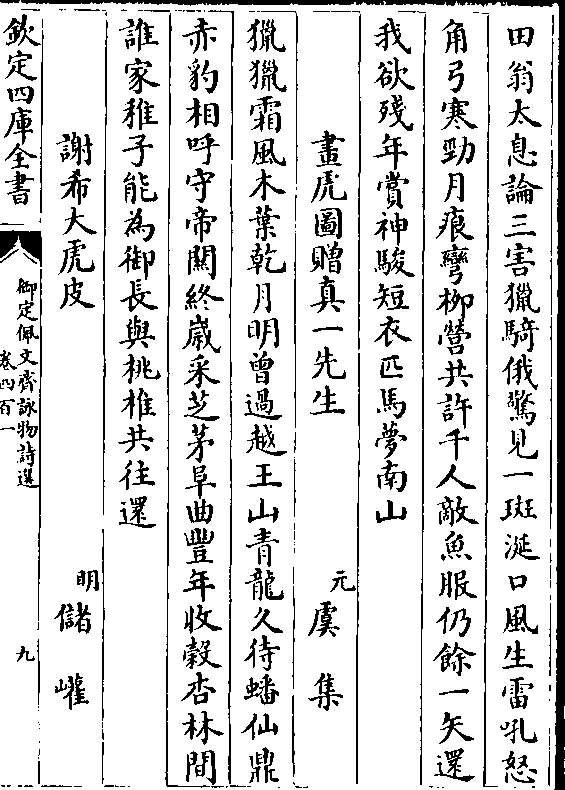 田翁太息論三害獵騎俄驚見一斑涎口風生雷吼怒
角弓寒勁月痕彎柳營共許千人敵魚服仍餘一矢還
我欲殘年賞神駿短衣匹馬夢南山
畫虎圖贈真一先生 元虞集
獵獵霜風木葉乾月明曾過越王山青龍久待蟠仙鼎
赤豹相呼守帝關終歲采芝茅阜曲豐年收穀杏林間
誰家稚子能為御長與桃椎共往還
謝希大虎皮 明儲巏
欽定四庫全書
御定佩文齋詠物詩選
卷四百一
九